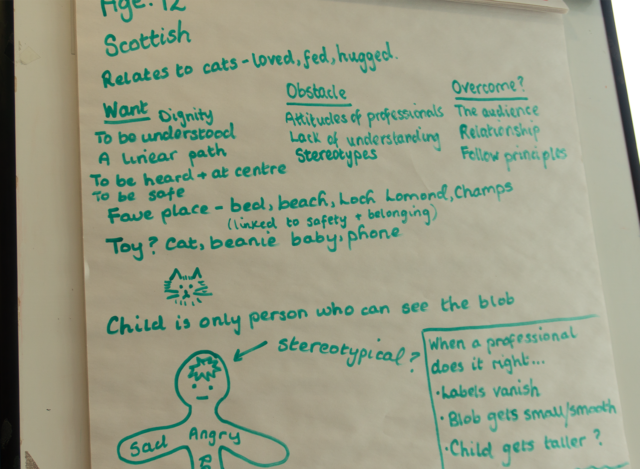 Age: 12
Scottish
Relates to cats - loved, fed, hugged.
Want
Dignity
To be understood
A linear path
To be heard + at centre
To be safe
Obstacle
Attitudes of professionals
Lack of understanding
Stereotypes
Overcome?
The audience
Relationship
Follow principles
Fave place - bed, beach, Loch Lomond, Champs
(linked to safety + belonging)
Toy? Cat, beanie baby, phone
Child is only person who can see the blob
stereotypical?
Sad
Angry
When a professional
does it right...
• Labels vanish
• Blob gets small/smooth
• Child gets taller?